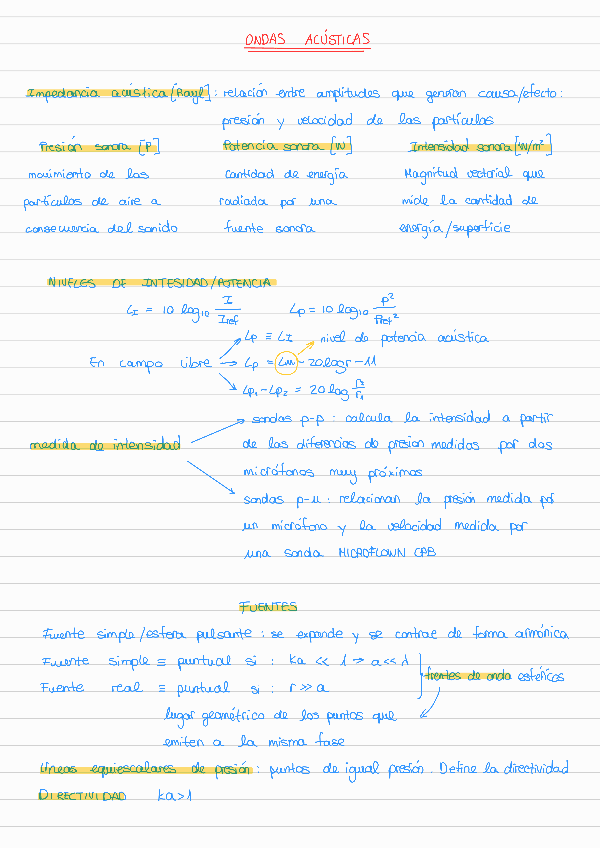 ONDAS ACÚSTICAS
Impedancia acústica [Rayl]: relación entre amplitudes que generan causa/efecto:
presión y velocidad de las partículas
Presión sonora [P] Potencia sonora [W] Intensidad sonora [W/m²]
movimiento de las cantidad de energía Magnitud vectorial que
partículas de aire a radiada por una mide la cantidad de
consecuencia del sonido fuente sonora energía/superficie
NIVELES DE INTESIDAD/POTENCIA
L_I = 10 log₁₀ I/Iref Lp = 10 log₁₀ p²/Pref²
Lp ≡ L_I nivel de potencia acústica
En campo libre → Lp = Lw - 20logr - 11
Lp₁ - Lp₂ = 20 log r₂/r₁
sondas p-p: calcula la intensidad a partir
medida de intensidad de las diferencias de presión medidas por dos
micrófonos muy próximos
sondas p-u: relacionan la presión medida por
un micrófono y la velocidad medida por
una sonda MICROFLOWN
FUENTES
Fuente simple/esfera pulsante: se expande y se contrae de forma armónica
Fuente simple ≡ puntual si: ka << 1 → a << λ
frentes de onda esféricos
Fuente real ≡ puntual si: r >> a
lugar geométrico de los puntos que
emiten a la misma fase
Líneas equiescalares de presión: puntos de igual presión. Define la directividad
DIRECTIVIDAD ka>1